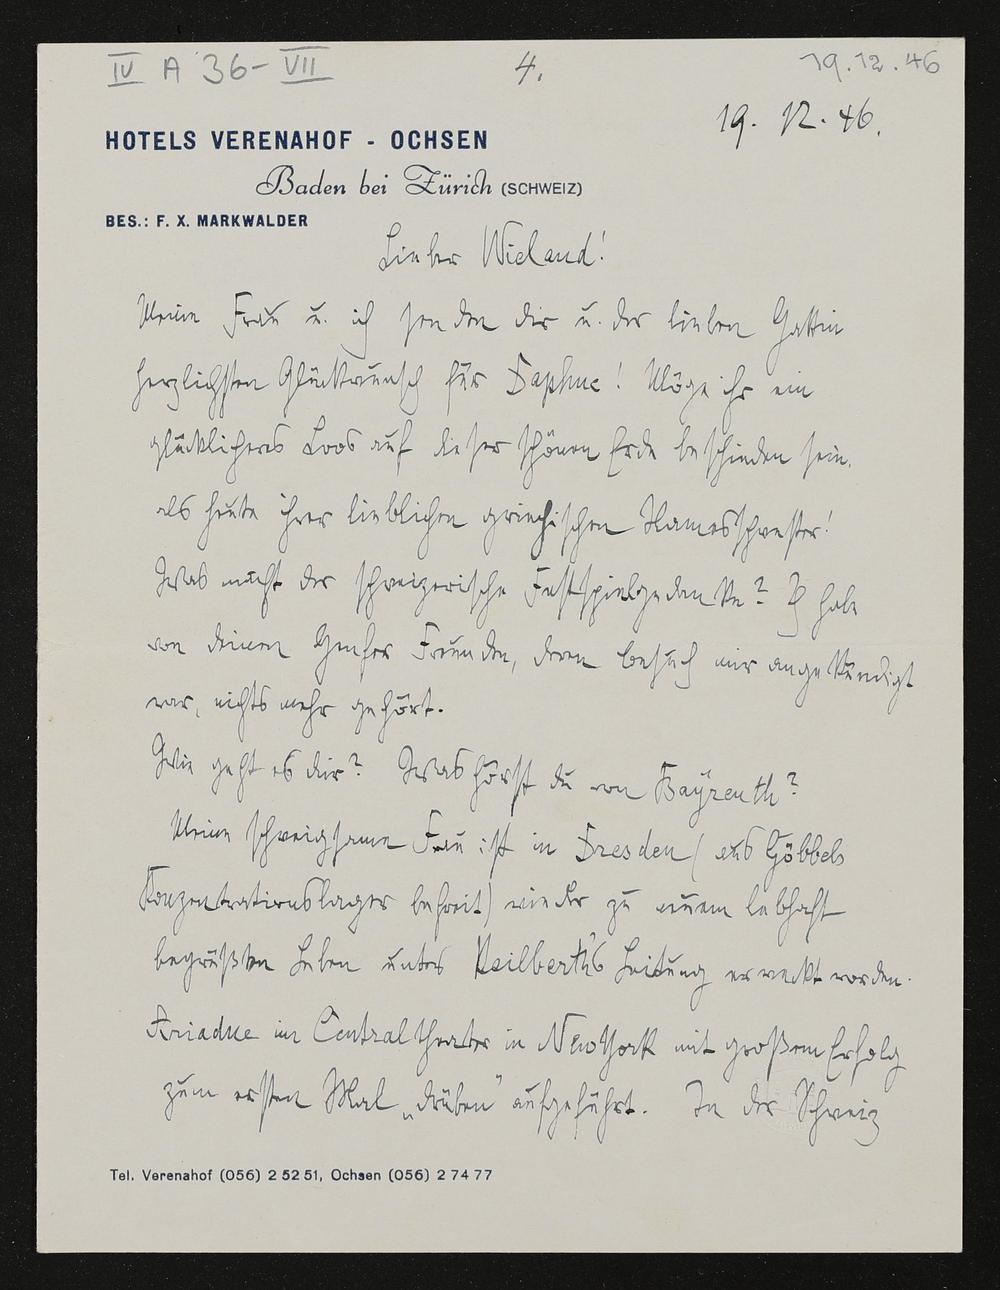 IV A 36-VII
4.
19.12.46
19. 12. 46.
HOTELS VERENAHOF - OCHSEN
Baden bei Zürich (SCHWEIZ)
BES.: F. X. MARKWALDER
Lieber Wieland!
Meine Frau u. ich senden dir u. der lieben Gattin
herzlichsten Glückwunsch für Daphne! Möge ihr ein
glücklicheres Loos auf dieser schönen Erde beschieden sein,
als heute ihrer lieblichen griechischen Namesschwester!
Was macht der schweizerische Festspielgedanke? Ich habe
von deinen Genfer Freunden, deren Besuch mir angekündigt
war, nichts mehr gehört.
Wie geht es dir? Was hörst du von Bayreuth?
Meine schweigsame Frau ist in Dresden (aus Göbbels
Konzentrationslager befreit) wieder zu neuem lebhaft
begrüßten Leben unter Keilberth's Leitung erweckt worden.
Ariadne im Centraltheater in NewYork mit großem Erfolg
zum ersten Mal „drüben" aufgeführt. In der Schweiz
Tel. Verenahof (056) 2 52 51, Ochsen (056) 2 74 77